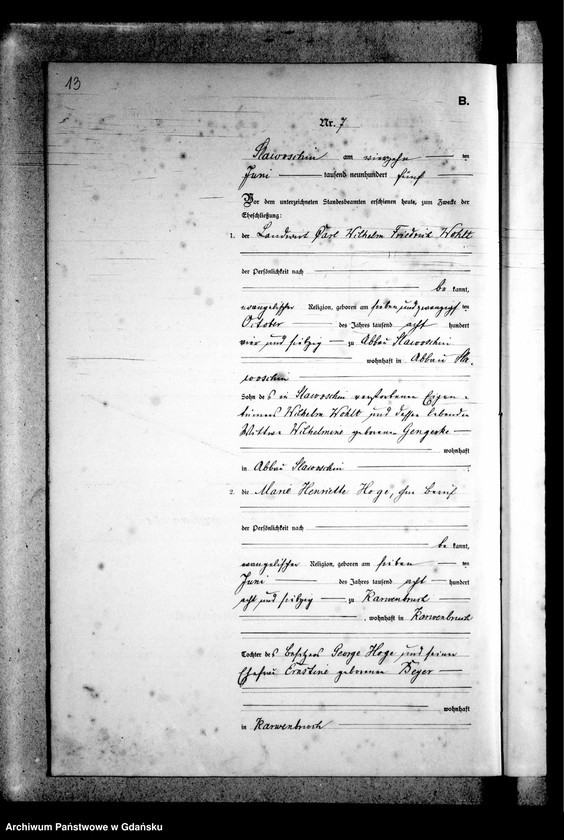 13
B.
Nr. 7
Slawoschin am vierzehn ten
Juni tausend neunhundert fünf
Vor dem unterzeichneten Standesbeamten erschienen heute, zum Zwecke der
Eheschließung:
1. der Landwirt Carl Wilhelm Friedrich Wohlt
der Persönlichkeit nach
be kannt,
evangelischer Religion, geboren am sieben und zwanzigsten
October des Jahres tausend acht hundert
vier und siebzig zu Abbau Slawoschin
wohnhaft in Abbau Sla-
woschin
Sohn des in Slawoschin verstorbenen Eigen-
tümers Wilhelm Wohlt und dessen lebenden
Wittwe Wilhelmine geborenen
wohnhaft
in Abbau Slawoschin
2. die Marie Henriette Hoge, ohne Beruf
der Persönlichkeit nach
be kannt,
evangelischer Religion, geboren am sieben ten
Juni des Jahres tausend acht hundert
acht und siebzig zu Karwenbruch
, wohnhaft in Karwenbruch
Tochter des Besitzers George Hoge und seiner
Ehefrau Ernstine geborenen Beyer
wohnhaft
in Karwenbruch
Archiwum Państwowe w Gdańsku